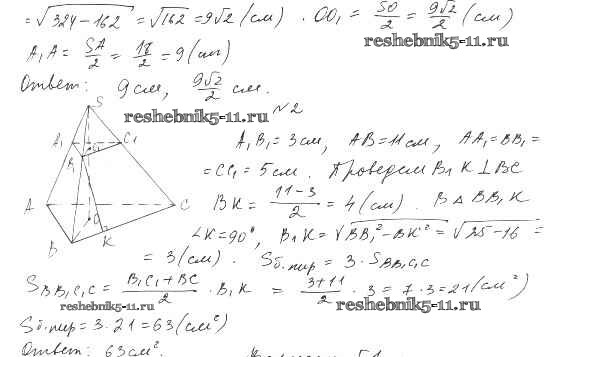 = √324 − 162 = √162 = 9√2 (см) . OO₁ = SO/2 = 9√2/2 (см)
reshebnik5-11.ru
A₁A = SA/2 = 18/2 = 9 (см)
Ответ: 9 см, 9√2/2 см.
reshebnik5-11.ru
№2
S
A₁ C₁
B₁
A C
O
B K
A₁B₁ = 3 см, AB = 11 см, AA₁ = BB₁ =
= CC₁ = 5 см. Проведем B₁K ⊥ BC
BK = (11 − 3)/2 = 4 (см). В △ BB₁K
∠K = 90°, B₁K = √BB₁² − BK² = √25 − 16 =
= 3 (см). Sб.пир = 3 · SBB₁C₁C
SBB₁C₁C = (B₁C₁ + BC)/2 · B₁K = (3 + 11)/2 · 3 = 7 · 3 = 21 (см²)
reshebnik5-11.ru reshebnik5-11.ru
Sб.пир = 3 · 21 = 63 (см²)
Ответ: 63 см².